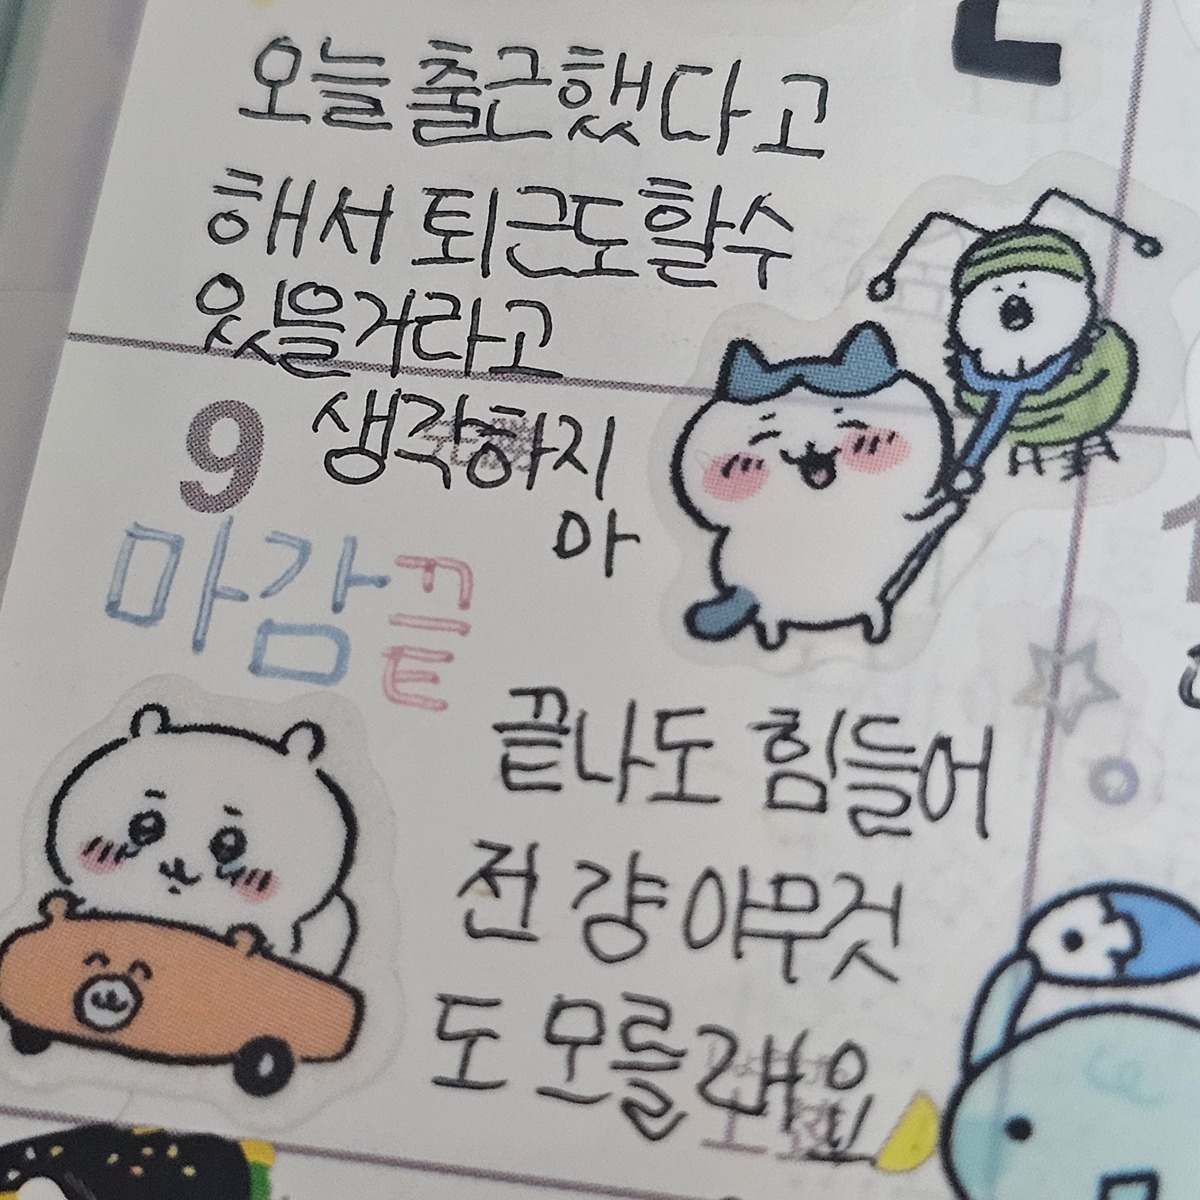 오늘 출근했다고
해서 퇴근도 할수
있을거라고
9
생각하지
아
마감끝
끝나도 힘들어
전 걍 아무것
도 모를래요